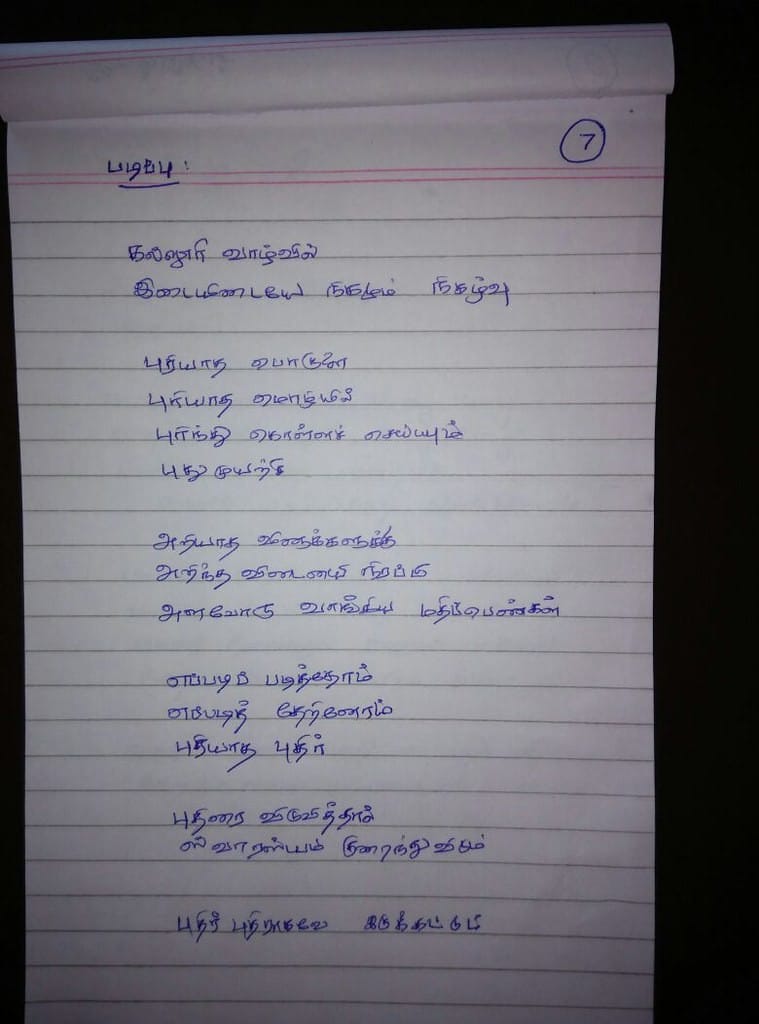 7
படிப்பு :
கல்லூரி வாழ்வில்
இடையிடையே நிகழும் நிகழ்வு
புரியாத பொருளை
புரியாத மொழியில்
புரிந்து கொள்ளச் செய்யும்
புது முயற்சி
அறியாத வினாக்களுக்கு
அறிந்த விடையை நிரப்பி
அளவோடு வாங்கிய மதிப்பெண்கள்
எப்படிப் படித்தோம்
எப்படித் தேறினோம்
புரியாத புதிர்
புதிரை விடுவித்தால்
ஸ்வாரஸ்யம் குறைந்துவிடும்
புதிர் புதிராகவே இருக்கட்டும்